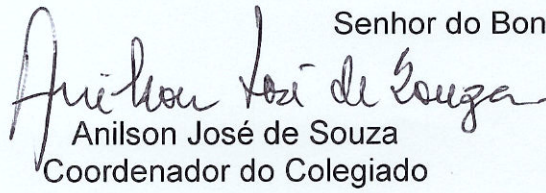 Senhor do Bon
Anilson José de Souza
Anilson José de Souza
Coordenador do Colegiado